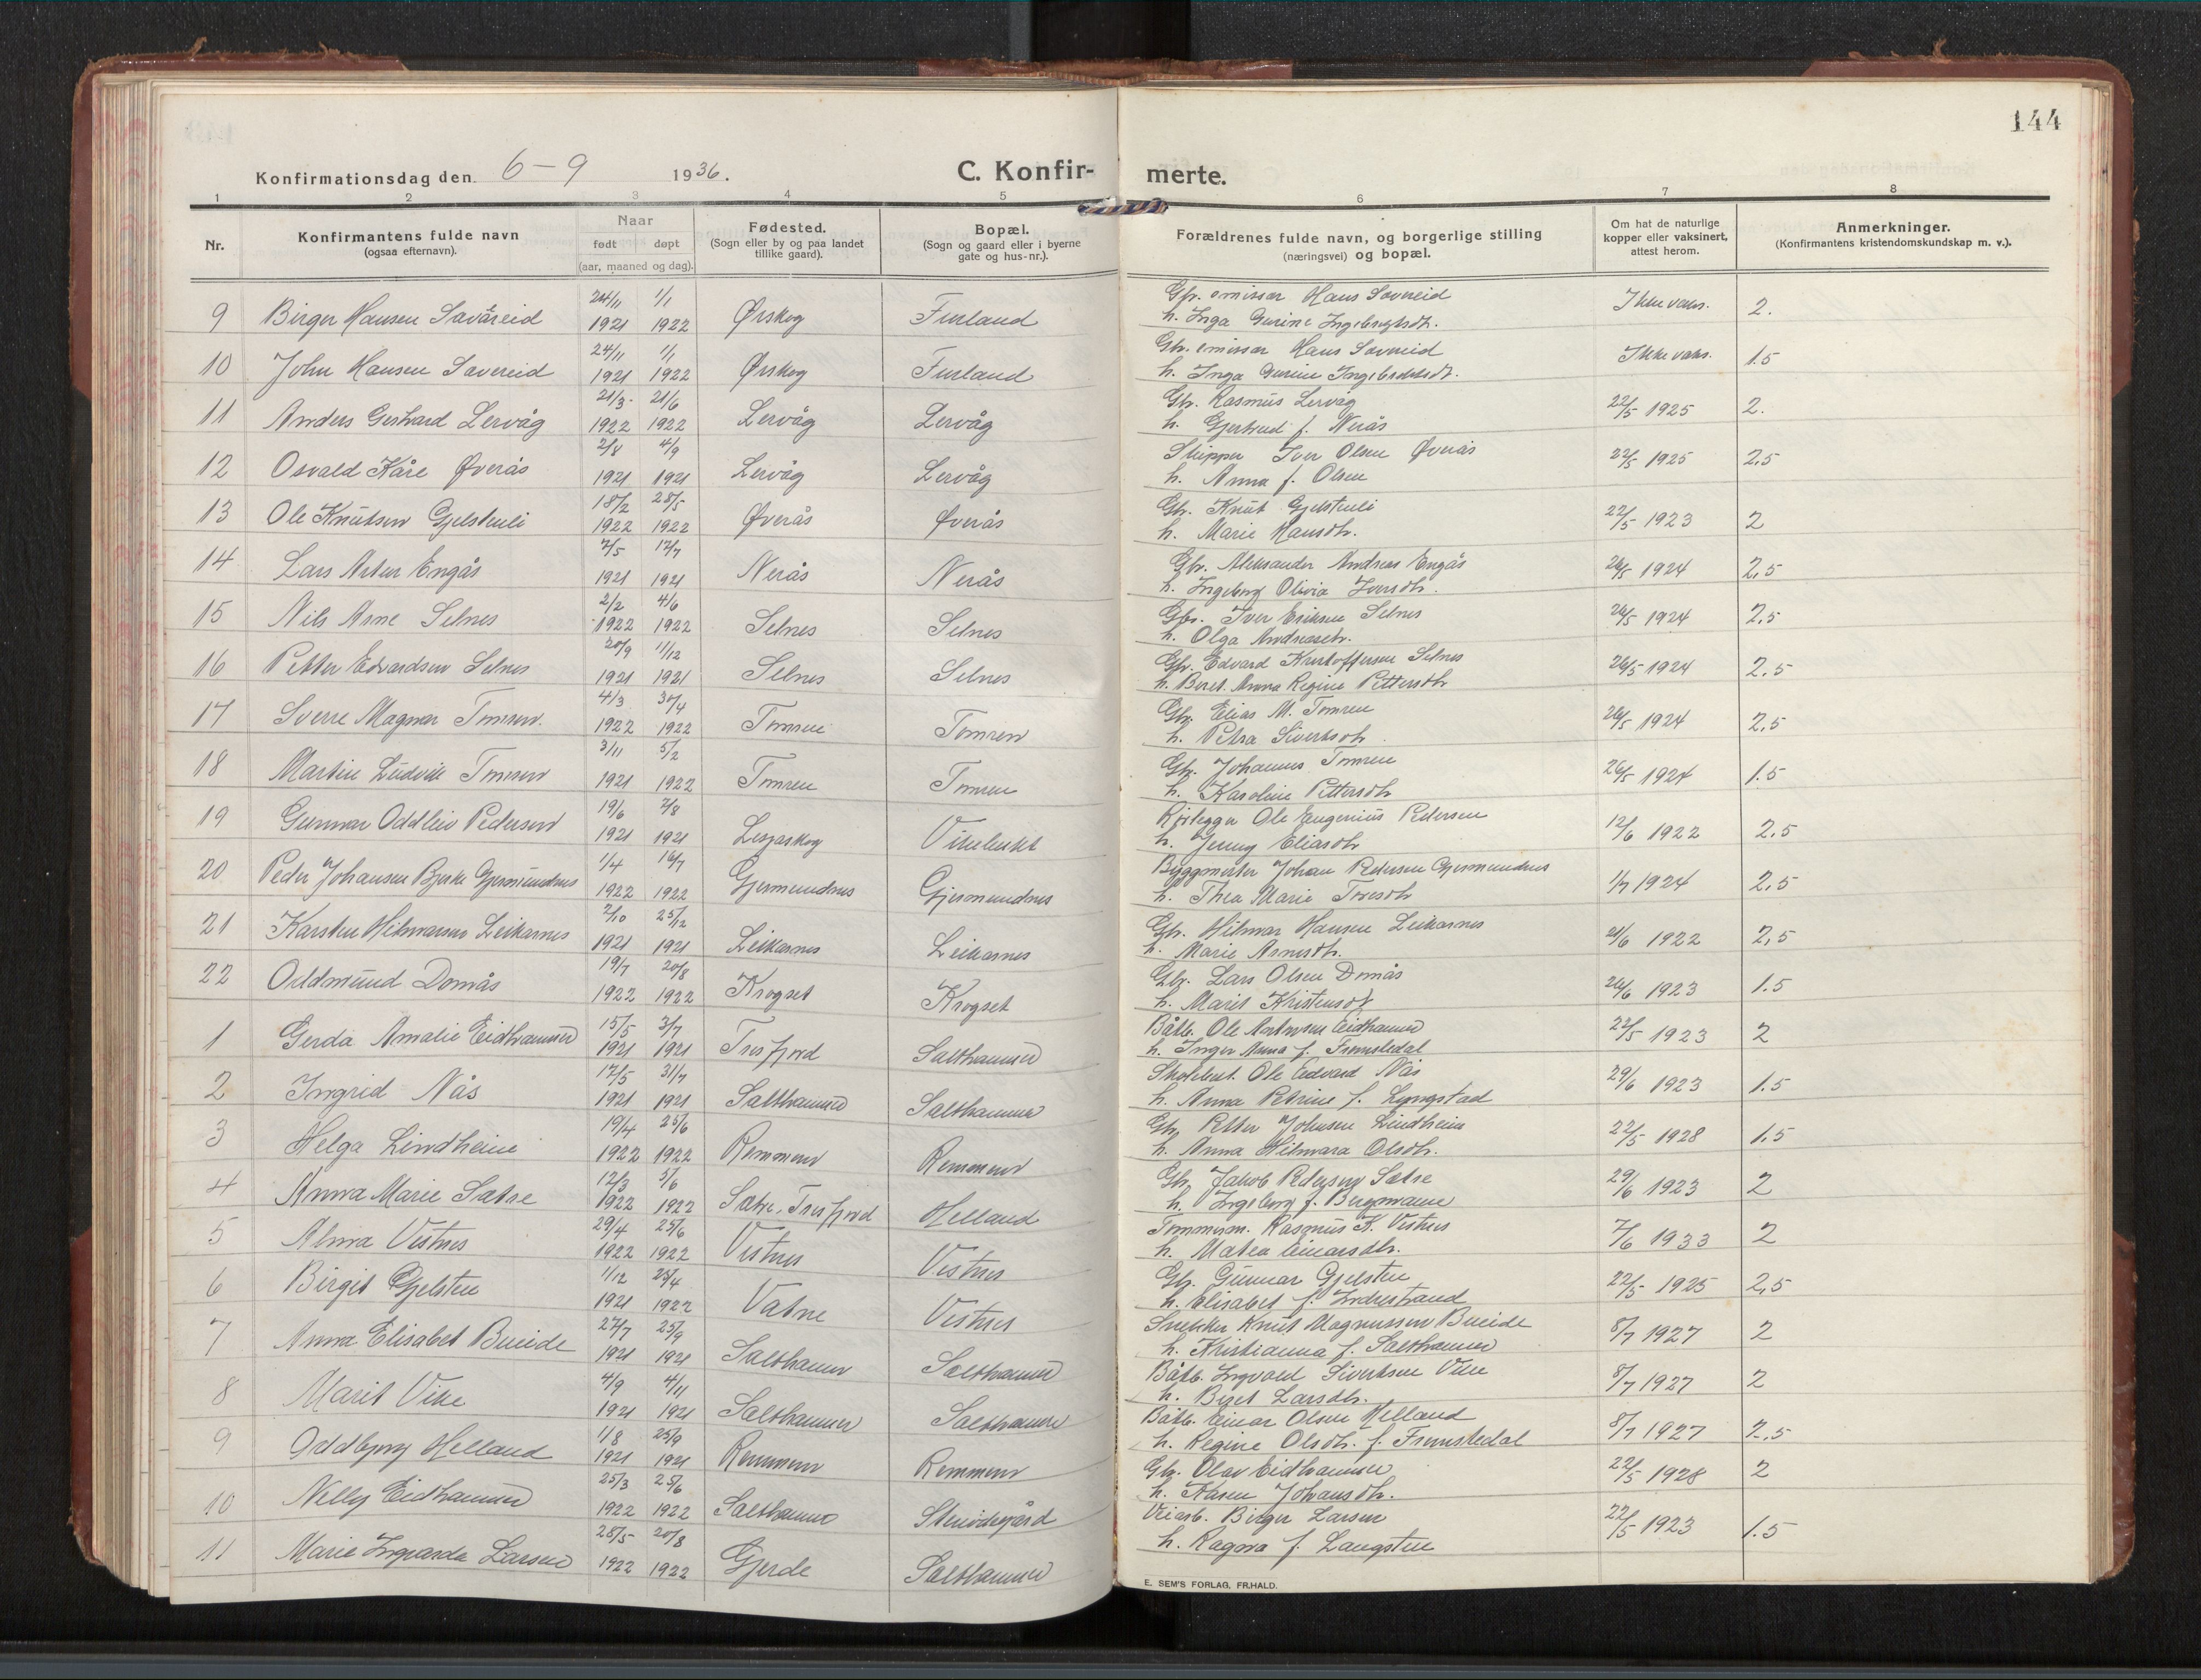 144
Konfirmationsdag den 6-9 1936.
C. Konfirmerte.
1 2 3 4 5 6 7 8
Nr.
Konfirmantens fulde navn
(ogsaa efternavn).
Naar
født døpt
(aar, maaned og dag).
Fødested.
(Sogn eller by og paa landet
tillike gaard).
Bopæl.
(Sogn og gaard eller i byerne
gate og hus-nr.).
Forældrenes fulde navn, og borgerlige stilling
(næringsvei) og bopæl.
Om hat de naturlige
kopper eller vaksinert,
attest herom.
Anmerkninger.
(Konfirmantens kristendomskundskap m. v.).
9 Birger Hansen Savåreid 24/11 1921 1/1 1922 Ørskog Furland Gbr. emissær Hans Savereid Ikke vaks. 2.
h. Inga Gurine
10 John Hansen Savereid 24/11 1921 1/1 1922 Ørskog Furland Gbr. emissær Hans Savereid Ikke vaks. 1.5
h. Inga Gurine
11 Anders Gerhard Lervåg 21/3 1922 21/6 1922 Lervåg Lervåg Gbr. Rasmus Lervåg 22/5 1925 2.
h. Gjertrud f. Nerås
12 Osvald Kåre Øverås 2/8 1921 4/9 1921 Lervåg Lervåg Skipper Iver Olsen Øverås 22/5 1925 2.5
h. Anna f. Olsen
13 Ole Knutsen Gjelstenli 18/2 1922 28/5 1922 Øverås Øverås Gbr. Knut Gjelstenli 22/5 1923 2
h. Marie Hansdtr.
14 Lars Artur Engås 7/5 1921 17/7 1921 Nerås Nerås Gbr. Aleksander Andreas Engås 26/5 1924 2,5
h. Ingeborg Olivia Iversdtr.
15 Nils Arne Selnes 2/2 1922 4/6 1922 Selnes Selnes Gbr. Iver Eriksen Selnes 26/5 1924 2,5
h. Olga Andreasdtr.
16 Petter Edvardsen Selnes 20/9 1921 11/12 1921 Selnes Selnes Gbr. Edvard Kristoffersen Selnes 26/5 1924 2.5
h. Beret Anna Regine Pettersdtr
17 Sverre Magnar Tomren 4/3 1922 30/4 1922 Tomren Tomren Gbr. Elias M. Tomren 26/5 1924 2,5
h. Petra Sivertsdtr.
18 Martin Ludvik Tomren 3/11 1921 5/2 1922 Tomren Tomren Gbr. Johannes Tomren 26/5 1924 1.5
h. Karoline Pettersdtr
19 Gunnar Oddleiv Pedersen 19/6 1921 7/8 1921 Lesjaskog Vikebukt Rørlegger Ole Eugenius Pedersen 12/6 1922 2.5
h. Jenny Eliasdtr
20 Peder Johansen Bjerke Gjermundnes 1/4 1922 16/7 1922 Gjermundnes Gjermundnes Byggmester Johan Pedersen Gjermundnes 1/7 1924 2,5
h. Thea Marie Toresdtr
21 Karsten Hilmarsen Leikarnes 7/10 1921 25/12 1921 Leikarnes Leikarnes Gbr. Hilmar Hansen Leikarnes 21/6 1922 2,5
h. Marie Arnesdtr.
22 Oddmund Domås 19/7 1922 20/8 1922 Krogset Krogset Gbr. Lars Olsen Domås 26/6 1923 1.5
h. Marit Kristensdtr
1 Gerda Amalie Eidhammer 15/5 1921 3/7 1921 Tresfjord Salthammer Båtb. Ole Antonsen Eidhammer 22/5 1923 2
h. Inger Anna f. Frimstedal
2 Ingrid Nås 17/5 1921 31/7 1921 Salthammer Salthammer Skolebest. Ole Edvard Nås 29/6 1923 1.5
h. Anna Petrine f. Lyngstad
3 Helga Lindheim 19/4 1922 25/6 1922 Remmem Remmem Gbr. Petter Johnsen Lindheim 22/5 1928 1.5
h. Anna Hilmara Olsdtr.
4 Anna Marie Sætre 12/3 1922 5/6 1922 Sætre, Tresfjord Helland Gbr. Jakob Pedersen Sætre 29/6 1923 2
h. Ingeborg f. Bergmann
5 Alma Vestnes 29/4 1922 25/6 1922 Vestnes Vestnes Tømmerm. Rasmus K. Vestnes 7/6 1933 2
h. Matea Einarsdtr.
6 Birgit Gjelsten 1/12 1921 25/4 1922 Vatne Vestnes Gb. Gunnar Gjelsten 22/5 1925 2,5
h. Elisabet f. Indrestrand
7 Anna Elisabet Bueide 27/7 1921 25/9 1921 Salthammer Salthammer Snekker Knut Magnussen Bueide 8/7 1927 2
h. Kristianna f. Salthammer
8 Marit Vike 4/9 1921 4/11 1921 Salthammer Salthammer Båtb. Ingvald Sivertsen Vike 8/7 1927 2
h. Beret Larsdtr.
9 Oddbjørg Helland 1/8 1921 25/9 1921 Remmem Remmem Båtb. Einar Olsen Helland 8/7 1927 2.5
h. Regine Olsdtr. f. Frimstedal
10 Nelly Eidhammer 25/3 1922 25/6 1922 Salthammer Gbr. Olav Eidhammer 22/5 1928 2
h. Karen Johansdtr.
11 Marie Ingvarda Larsen 28/5 1922 20/8 1922 Gjerde Salthammer Veiarb. Birger Larsen 22/5 1923 1.5
h. Ragna f. Langsten
E. SEM'S FORLAG, FR.HALD.